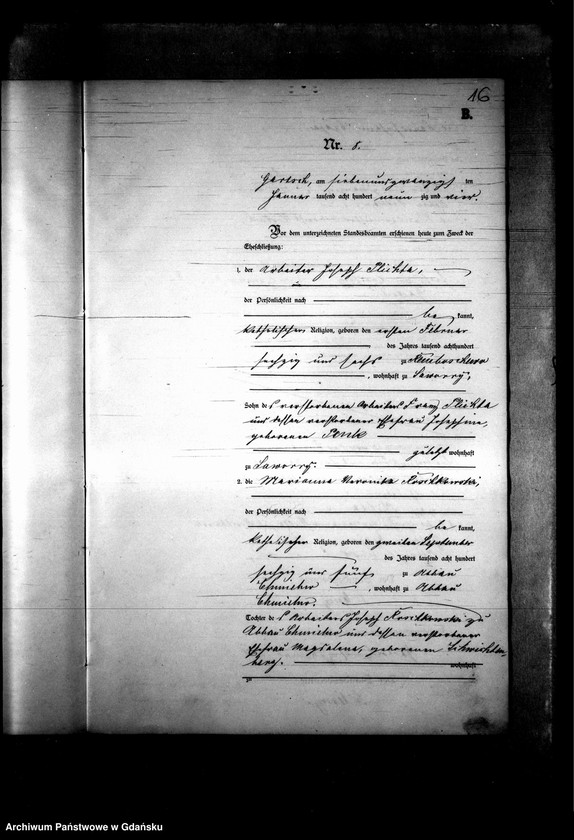 16
B.
Nr. 8.
am siebenundzwanzigsten ten
Januar tausend acht hundert neun zig und vier.
Vor dem unterzeichneten Standesbeamten erschienen heute zum Zweck der
Eheschließung:
1. der Arbeiter Joseph Plichta,
der Persönlichkeit nach
be kannt,
katholischer Religion, geboren den ersten Februar
des Jahres tausend achthundert
sechzig und sechs zu
, wohnhaft zu Saworry,
Sohn des verstorbenen Arbeiters Franz Plichta
und dessen verstorbener Ehefrau Josephine,
geborenen
zuletzt wohnhaft
zu Saworry.
2. die Marianna Veronika
der Persönlichkeit nach
be kannt,
katholischer Religion, geboren den zweiten September
des Jahres tausend acht hundert
sechzig und fünf zu Abbau
Chmielno, wohnhaft zu Abbau
Chmielno.
Tochter des Arbeiters Joseph zu
Abbau Chmielno und dessen verstorbener
Ehefrau Magdalena, geborenen
wohnhaft
zu
Archiwum Państwowe w Gdańsku